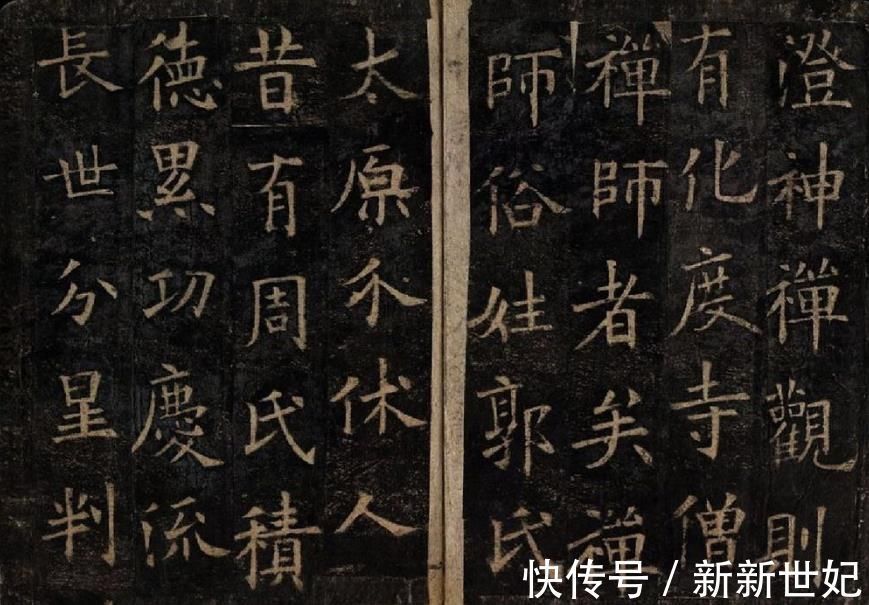 澄神禪觀則
有化度寺僧
禪師者矣禪
師俗姓郭氏
太原介休人
昔有周氏積
德累功慶流
長世分星判
快传号 / 新新世妃